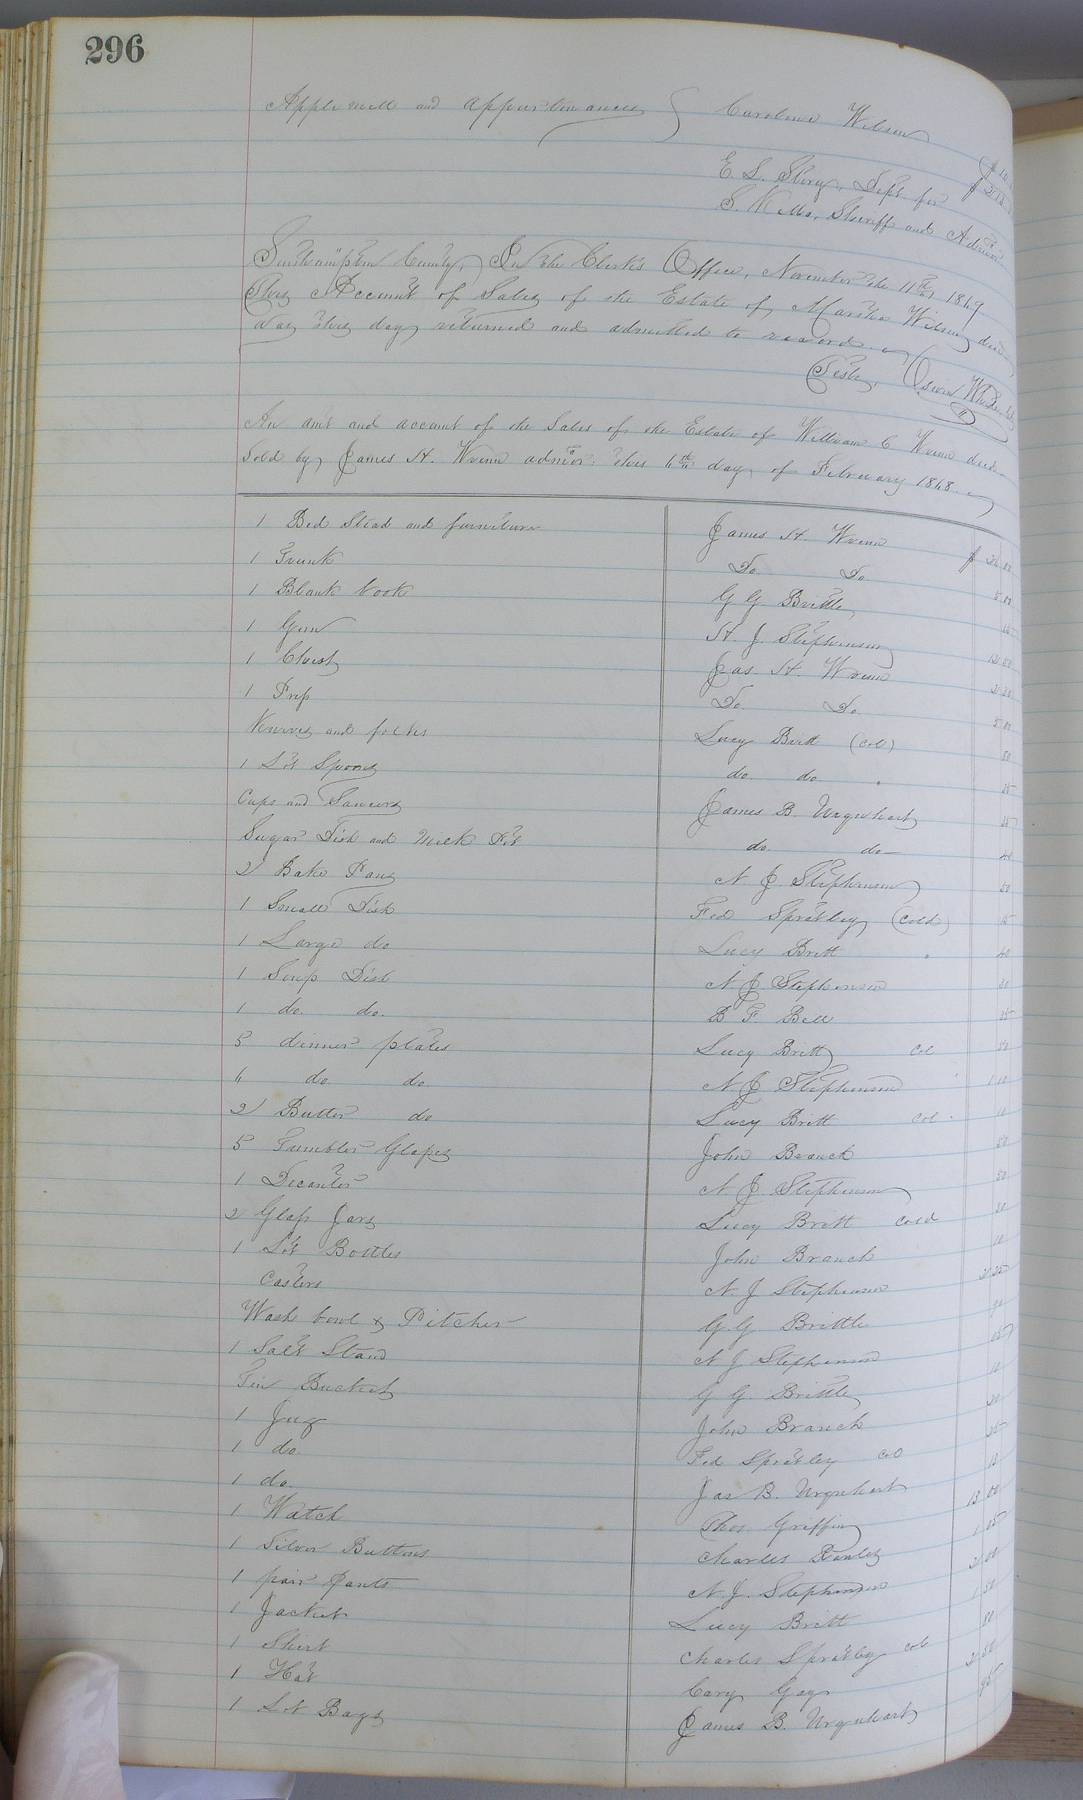 296
Apple mill and appurtenances } Caroline Wilson
E. L. Story, Dept for
S. Kello, Sheriff and Admor
Southampton County, In the Clerk's Office, November the 11th 1869
This Account of Sales of the Estate of Martha Wilson decd
was this day returned and admitted to record.
Teste,
An amt and account of the Sales of the Estate of William C Wrenn decd
Sold by James H. Wrenn admor: this 6th day of February 1868.
1 Bed Stead and furniture James H. Wrenn
1 Trunk Do. Do. 5.00
1 Blank book G G Brittle
1 Gun N. J. Stephenson
1 Chest Jas. H. Wrenn
1 Do. Do. 5.00
Knives and forks Lucy Britt (col) 50
1 Lot Spoons do. do. 25
Cups and Saucers James B. Urquhart
Sugar Dish and Milk Pot do. do
2 Bake Pans N J Stephenson 50
1 Small Dish Fed Spratley (cold) 15
1 Large do Lucy Britt 40
1 Soup Dish N J Stephenson
1 do. do. B F. Bell
5 dinner plates Lucy Britt col 50
6 do do N. J Stephenson
2 Butter do Lucy Britt col. 10
5 Tumbler Glasses John Branch 50
1 Decanter N J. Stephenson 50
2 Glass Jars Lucy Britt cold
1 Lot Bottles John Branch 10
Casters N. J Stephenson 2.25
Wash bowl & Pitcher G. G. Brittle
1 Salt Stand N J Stephenson
Tin Bucket G G. Brittle 10
1 Jug John Branch
1 do. Fed Spratley col 25
1 do. Jas B. Urquhart
1 Watch Thos. Griffin
1 Silver Buttons Charles
1 pair Pants N. J. Stephenson 2.00
1 Jacket Lucy Britt 1.50
1 Shirt Charles Spratley col
1 Hat Cary Gay 2.50
1 Lot Bags James B. Urquhart 95